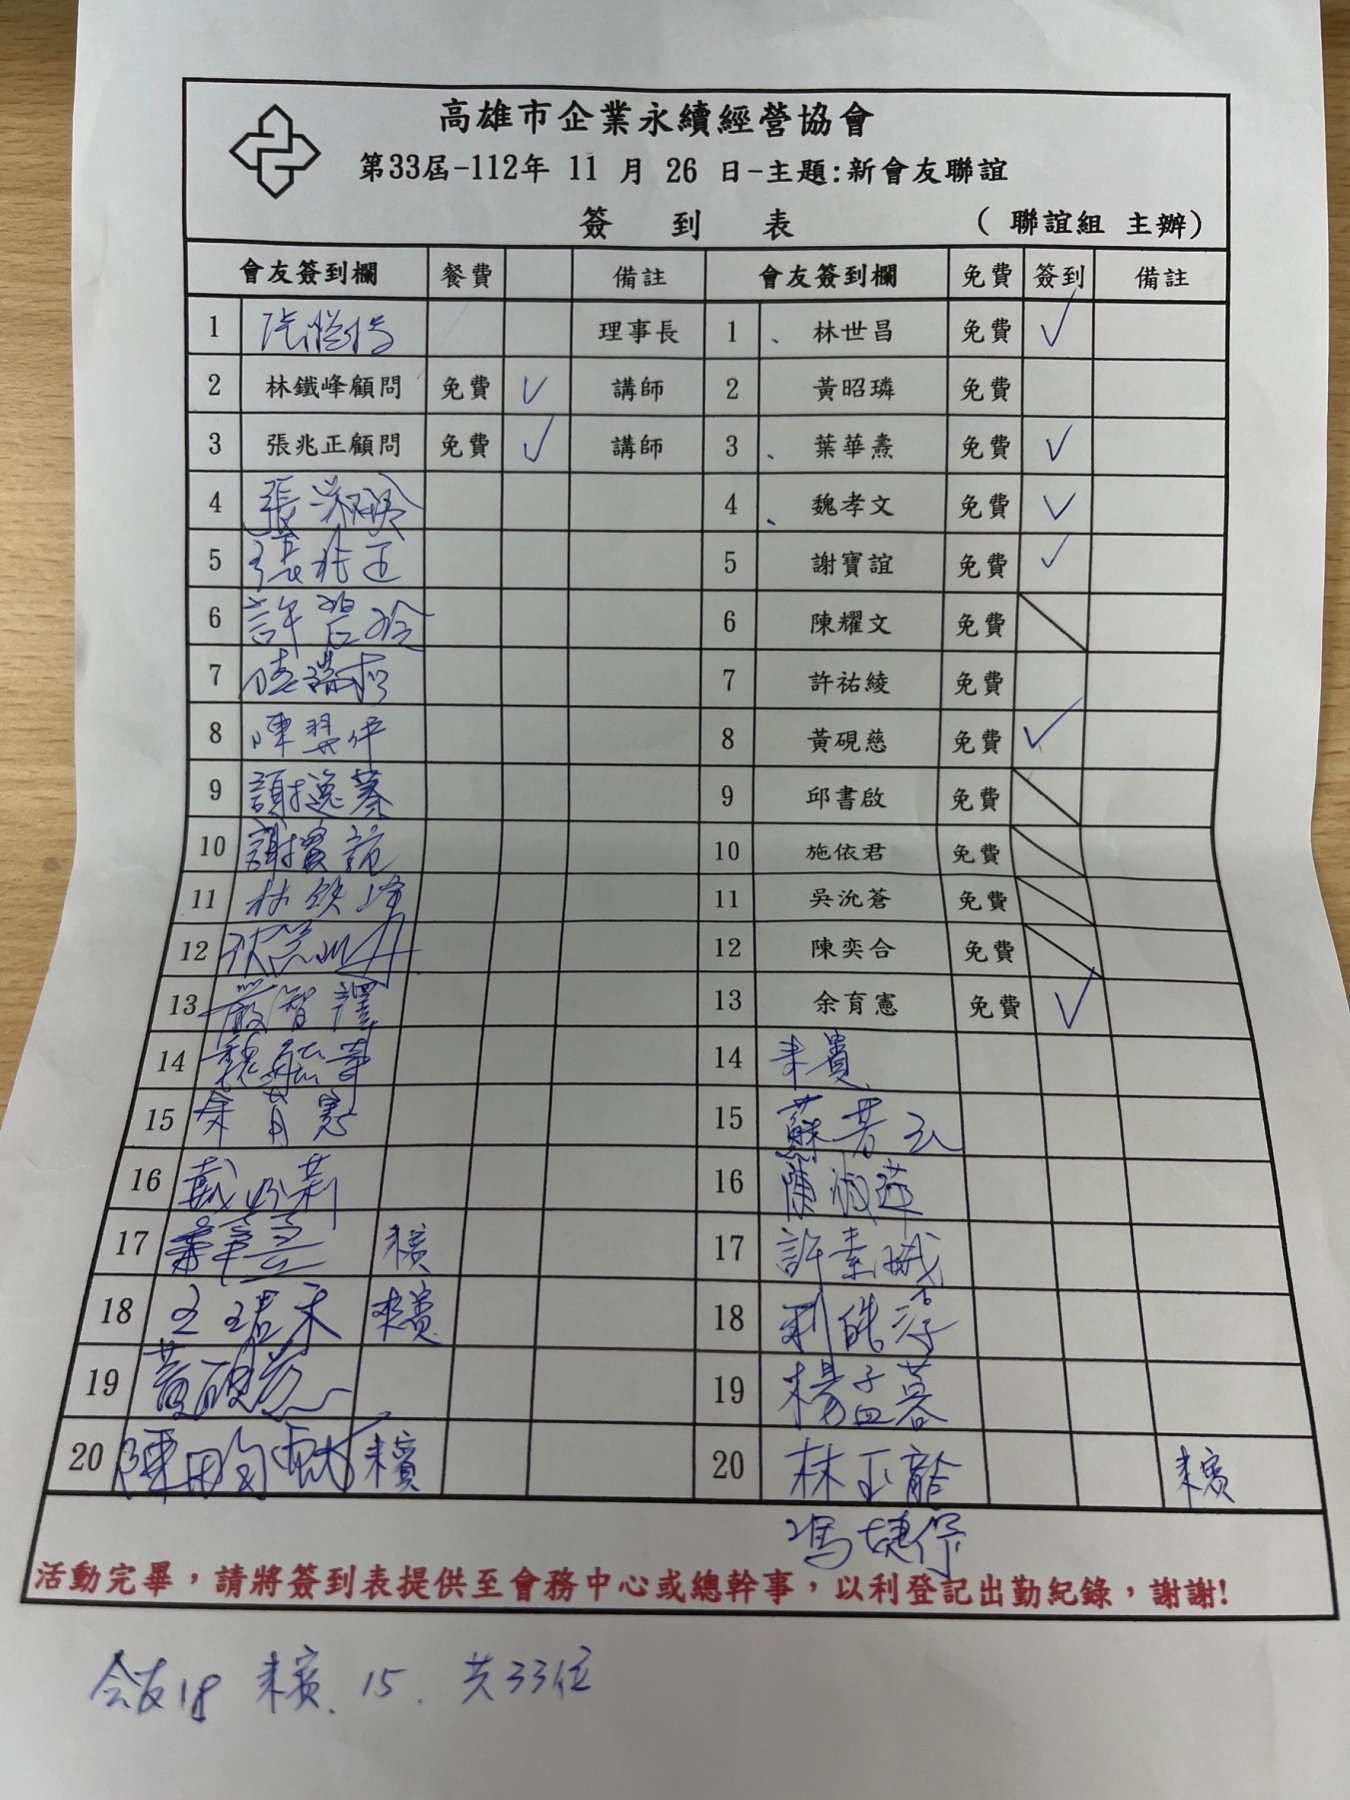 高雄市企業永續經營協會
第33屆-112年 11 月 26 日-主題:新會友聯誼
簽 到 表 ( 聯誼組 主辦)
會友簽到欄 餐費 備註 會友簽到欄 免費 簽到 備註
1 理事長 1 、 林世昌 免費 ✓
2 林鐵峰顧問 免費 ✓ 講師 2 黃昭璘 免費
3 張兆正顧問 免費 ✓ 講師 3 、 葉華燾 免費 ✓
4 張 4 、 魏孝文 免費 ✓
5 張兆正 5 謝寶誼 免費 ✓
6 許 6 陳耀文 免費
7 7 許祐綾 免費
8 陳 8 黃硯慈 免費 ✓
9 謝逸蓁 9 邱書啟 免費
10 謝寶誼 10 施依君 免費
11 林鉄峰 11 吳沇蒼 免費
12 12 陳奕合 免費
13 嚴智譯 13 余育憲 免費 ✓
14 魏 14 來賓
15 余育憲 15 蘇 云
16 戴 莉 16 陳淑
17 來賓 17 許素娥
18 王 禾 來賓 18 利皓淳
19 黃硯慈 19 楊孟蓉
20 陳 來賓 20 林正龍 來賓
馮婕伃
活動完畢，請將簽到表提供至會務中心或總幹事，以利登記出勤紀錄，謝謝!
会友18 來賓、15. 共33位